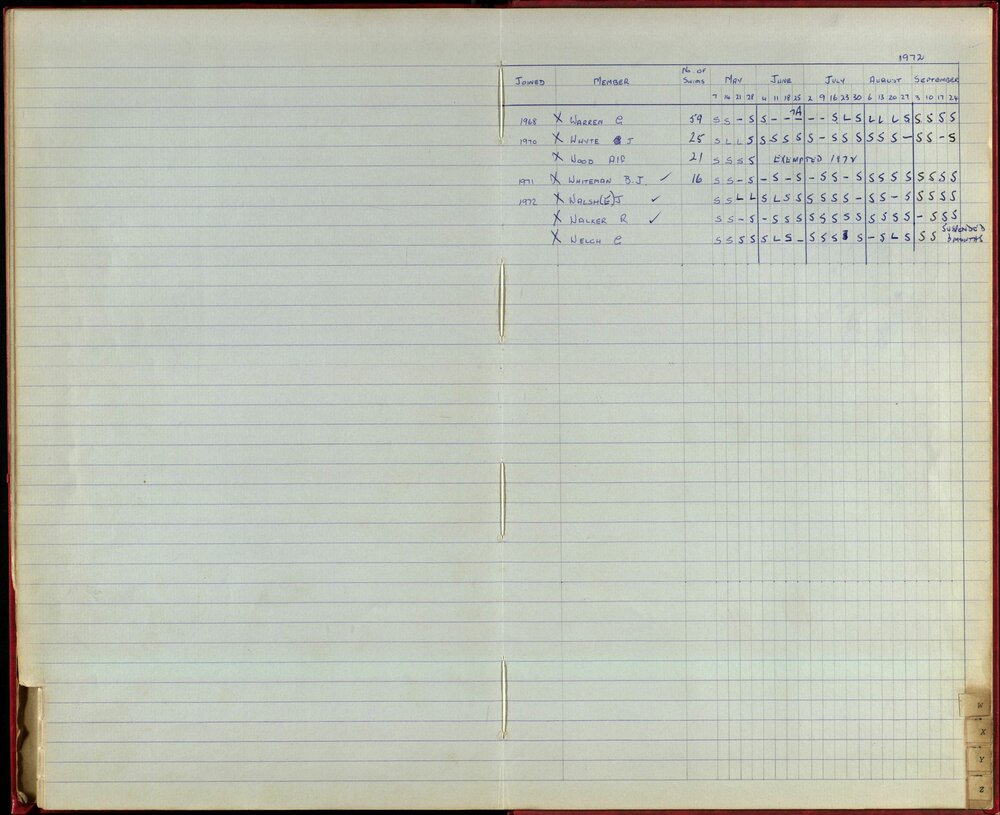 1972
JOINED MEMBER No. OF SWIMS MAY JUNE JULY AUGUST SEPTEMBER
7 14 21 28 4 11 18 25 2 9 16 23 30 6 13 20 27 3 10 17 24
1968 X WARREN C 59 S S - S S - - - - - S L S L L L S S S S S
1970 X WHYTE J 25 S L L S S S S S S - S S S S S S - S S - S
X WOOD 21 S S S S EXEMPTED 1972
1971 X WHITEMAN B.J. ✓ 16 S S - S - S - S - S S - S S S S S S S S S
1972 X WALSH(E)J ✓ S S L L S L S S S S S S - S S - S S S S S
X WALKER R ✓ S S - S - S S S S S S S S S S S S - S S S
X WELCH C S S S S S L S - S S S S - S L S S S SUSPENDED 3 MONTHS
W
X
Y
Z